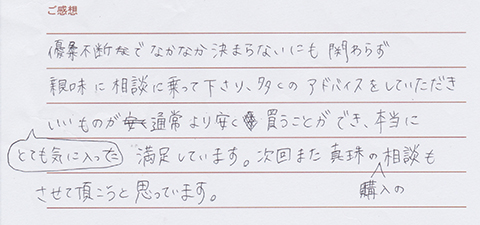 ご感想
優柔不断なでなかなか決まらないにも関わらず
親味に相談に乗って下さり、多くのアドバイスをしていただき
いいものが通常より安く買うことができ、本当に
とても気に入った 満足しています。次回また真珠の相談も
させて頂こうと思っています。 購入の